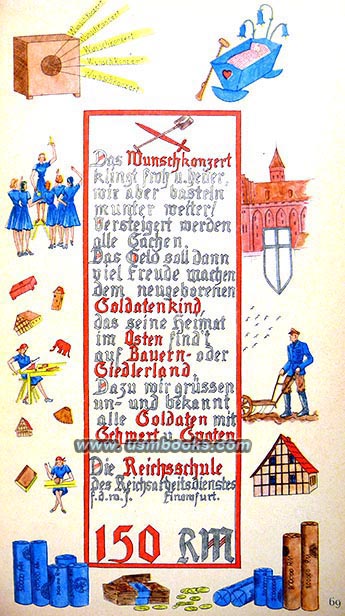 Wunschkonzert
Wunschkonzert
Wunschkonzert
Wunschkonzert
Wunschkonzert
Das Wunschkonzert
klingt froh u. heiter,
wir aber basteln
munter weiter!
Versteigert werden
alle Sachen.
Das Geld soll dann
viel Freude machen
dem neugeborenen
Soldatenkind,
das seine Heimat
im Osten find't
auf Bauern- oder
Siedlerland.
Dazu wir grüssen
un- und bekannt
alle Soldaten mit
Schwert u. Spaten
www.usmbooks.com
Die Reichsschule
des Reichsarbeitsdienstes
f.d.w.J. Finowfurt.
150 RM
69